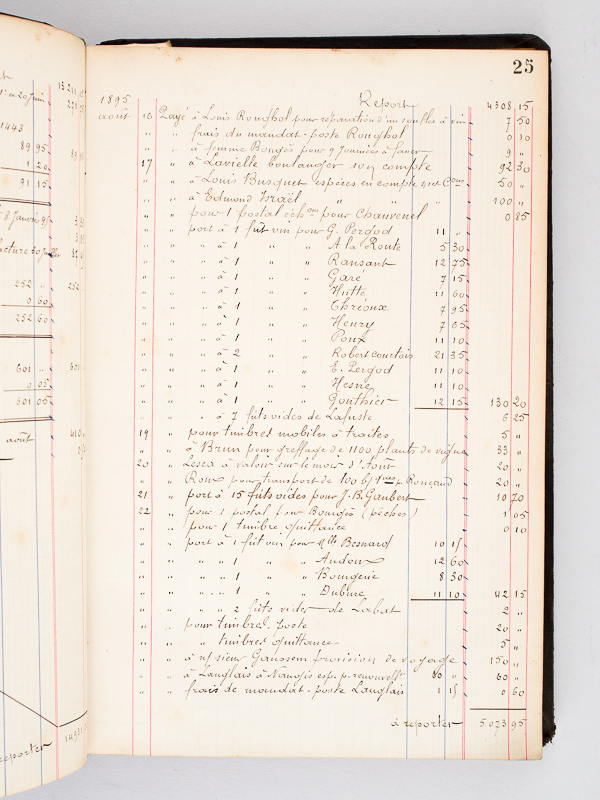 15 211
1er a 20 Juin 271
1443
89 95 89 95
1 20 1
91 15
8 Janvier 95
facture 30 Juillet
252 " 252
0 60
252 60
601 " 601
0 05
601 05
août 410
reporter 14931
25
1895 Report 4308 15
août 16 Payé à Louis Roughol pour réparation d'un soufles à vin 7 50
" " frais du mandat-poste Roughol 0 10
" " à femme Bougès pour 9 Journées à faner 9 "
17 " à Lavielle boulanger son compte 92 30
" " à Louis Busquet espèces en compte 50 "
" " à Edmond Israël " " 100 "
" " pour 1 postal éch^ons pour Chauvenel 0 85
" " port à 1 fût vin pour G. Pergod 11 "
" " " à 1 " " A la Route 5 30
" " " à 1 " " Ransant 12 75
" " " à 1 " " Garé 7 15
" " " à 1 " " Hutte 11 60
" " " à 1 " " Chréoux 7 95
" " " à 1 " " Henry 7 65
" " " à 1 " " Poux 11 10
" " " à 2 " " Robert courtois 21 35
" " " à 1 " " E. Pergod 11 10
" " " à 1 " " Hesne 11 10
" " " à 1 " " Gonthier 12 15 130 20
" " " à 7 fûts vides de Lafuste 6 25
19 " pour timbres mobiles à traites 5 "
" " à Brun pour greffage de 1100 plants de vigne 33 "
20 " Lesca à valoir sur le mois d'Août 20 "
" " Roux pour transport de 100 b/ques p. Rougaud 20 "
21 " port à 15 fûts vides pour J. B. Gaubert 10 70
22 " pour 1 postal pour Bourgès (pêches) 1 05
" " pour 1 timbre quittance 0 10
" " port à 1 fût vin pour Mlle Besnard 10 15
" " " " 1 " " Andoux 12 60
" " " " 1 " " Bourgerie 8 30
" " " " 1 " " Dubure 11 10 42 15
" " " " 2 fûts vides de Labat 2 "
" " pour timbres-poste 20 "
" " " timbres quittance 5 "
" " à n/ sieur Gaussem provision de voyage 150 "
" " à Langlais à Nangis esp. p. 60 " 60 "
" " frais de mandat-poste Langlais 1 15 0 60
à reporter 5073 95